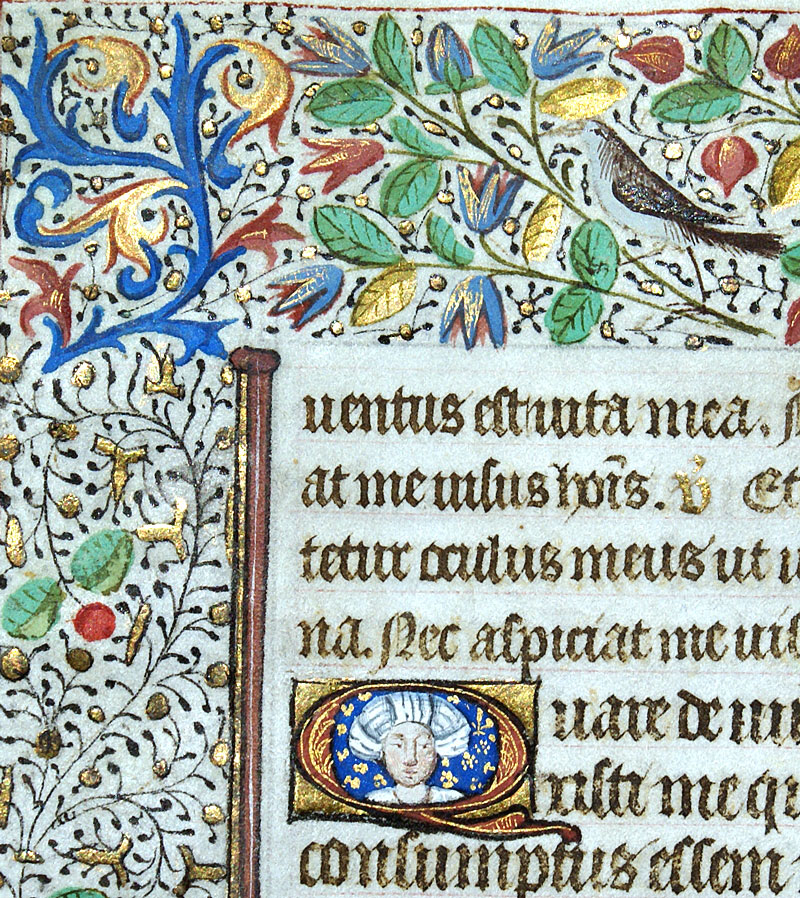 uentus est uita mea.
at me uisus hoīs. v̄ Et
tetur oculus meus ut
na. Nec aspiciat me uis
Quare de
xisti me qu
consumptus essem